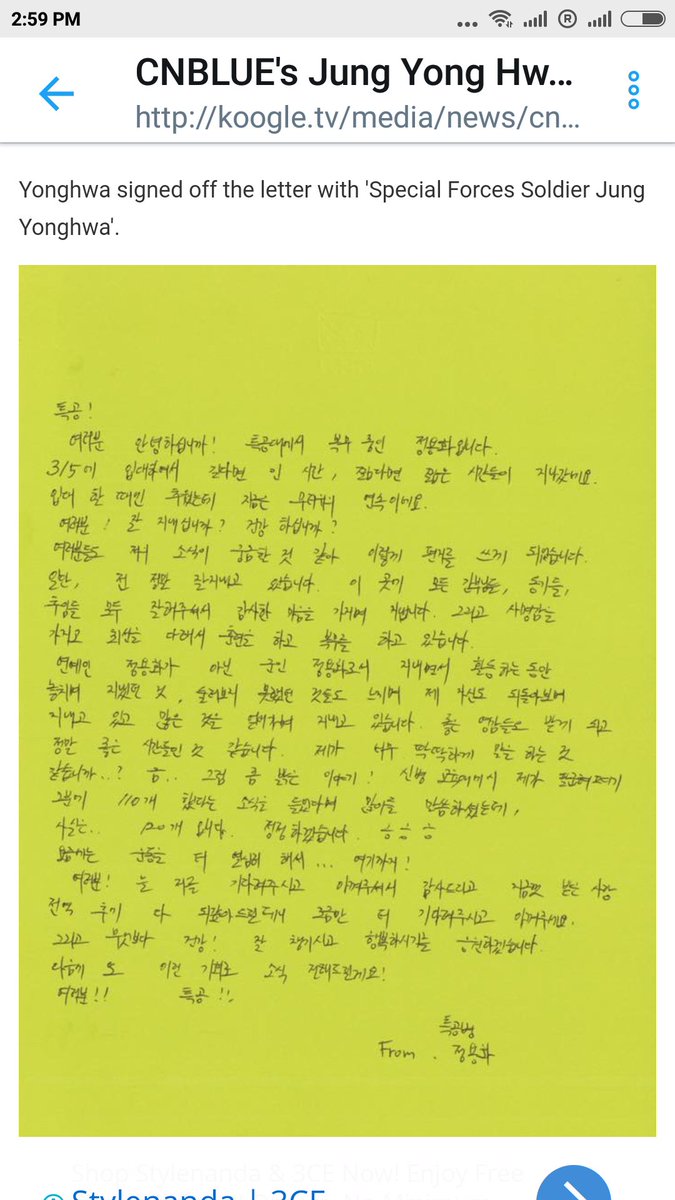 2:59 PM
CNBLUE's Jung Yong Hw...
http://koogle.tv/media/news/cn...
Yonghwa signed off the letter with 'Special Forces Soldier Jung
Yonghwa'.
특공!
여러분 안녕하십니까! 특공대에서 복무 중인 정용화입니다.
3/5에 입대후에서 길다면 긴 시간, 짧다면 짧은 시간들이 지나갔네요.
입대 할 때만 추웠는데 지금은 연속이네요.
여러분! 잘 지내십니까? 건강 하십니까?
여러분들도 저의 소식이 궁금한 것 같아 이렇게 편지를 쓰게 되었습니다.
일단, 전 정말 잘지내고 있습니다. 이 곳에 모든 간부님들, 동기들,
후임들 모두 잘해주셔서 감사한 마음을 가지며 지냅니다. 그리고 사명감을
가지고 최선을 다해서 훈련을 하고 복무를 하고 있습니다.
연예인 정용화가 아닌 군인 정용화로서 지내면서 활동하는 동안
놓치며 지냈던 것, 둘러보지 못했던 것들도 느끼며 제 자신도 되돌아보며
지내고 있고 많은 것을 지내고 있습니다. 좋은 영감들도 받게 되고
정말 좋은 시간들인 것 같습니다. 제가 너무 딱딱하게 말을 하는 것
같습니까..? 흠.. 그럼 좀 밝은 이야기! 신병 제가
110개 했다는 소식을 말씀하셨는데,
사실은.. 120개 입니다. 정정하겠습니다. ㅎㅎㅎ
요즘에는 운동을 더 열심히 해서... 여기까지!
여러분! 늘 저를 기다려주시고 아껴주셔서 감사드리고 지금껏 받은 사랑
전역 후에 다 되갚아드릴테니 조금만 더 기다려주시고 아껴주세요.
그리고 무엇보다 건강! 잘 챙기시고 행복하시기를 응원하겠습니다.
다음에 또 이런 기회로 소식 전해드릴게요!
여러분!! 특공!!
특공병
From. 정용화
Shop Stylenanda & 3CE Now! Enjoy Free
Stylenanda | 3CE